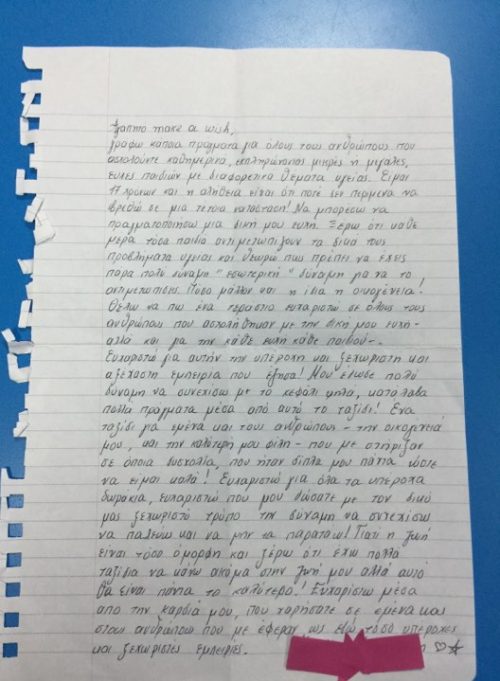 Αγαπητό make a wish,
γράφω κάποια πράγματα για όλους τους ανθρώπους που
ασχολούντε καθημερινά, εκπληρώνοντας μικρές ή μεγάλες,
ευχές παιδιών με διαφορετικά θέματα υγείας. Είμαι
17 χρονών και η αλήθεια είναι ότι ποτέ δεν περίμενα να
βρεθώ σε μια τέτοια κατάσταση! Να μπορέσω να
πραγματοποιήσω μια δική μου ευχή. Ξέρω ότι κάθε
μέρα τόσα παιδιά αντιμετωπίζουν τα δικά τους
προβλήματα υγείας και θεωρώ πως πρέπει να έχεις
πάρα πολύ δύναμη "εσωτερική" δύναμη για να το
αντιμετωπίσεις. Πόσο μάλλον και η ίδια η οικογένεια!
Θέλω να πω ένα τεράστιο ευχαριστώ σε όλους τους
ανθρώπους που ασχολήθηκαν με την δική μου ευχή -
αλλά και για την κάθε ευχή κάθε παιδιού -.
Ευχαριστώ για αυτήν την υπέροχη και ξεχωριστή και
αξέχαστη εμπειρία που έζησα! Μου έδωσε πολύ
δύναμη να συνεχίσω με το κεφάλι ψηλά, κατάλαβα
πολλά πράγματα μέσα από αυτό το ταξίδι! Ένα
ταξίδι για εμένα και τους ανθρώπους - την οικογένειά
μου, και την καλύτερή μου φίλη - που με στήριξαν
σε όποια δυσκολία, που ήταν δίπλα μου πάντα ώστε
να είμαι καλά! Ευχαριστώ για όλα τα υπέροχα
δωράκια, ευχαριστώ που μου δώσατε με τον δικό
σας ξεχωριστό τρόπο την δύναμη να συνεχίσω
να παλεύω και να μην τα παρατάω! Γιατί η ζωή
είναι τόσο όμορφη και ξέρω ότι έχω πολλά
ταξίδια να κάνω ακόμα στην ζωή μου αλλά αυτό
θα είναι πάντα το καλύτερο! Ευχαριστώ μέσα
από την καρδιά μου, που χαρήσατε σε εμένα και
στους ανθρώπους που με έφεραν ως εδώ τόσο υπέροχες
και ξεχωριστές εμπειρίες.